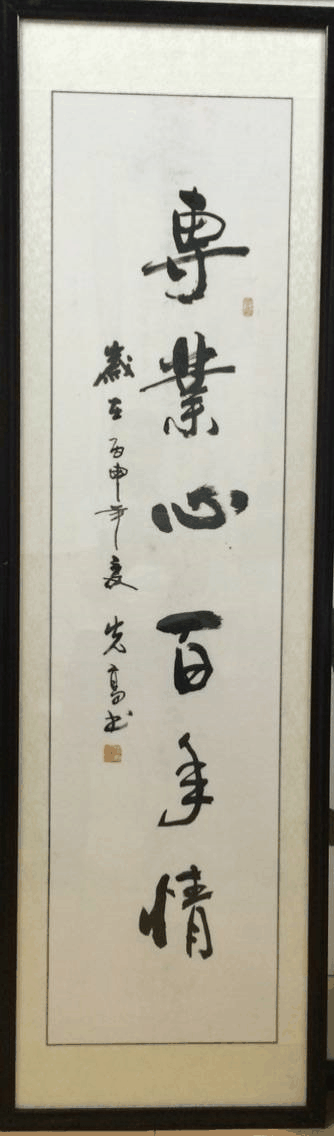 專業心百年情
歲在丙申年夏 先高书